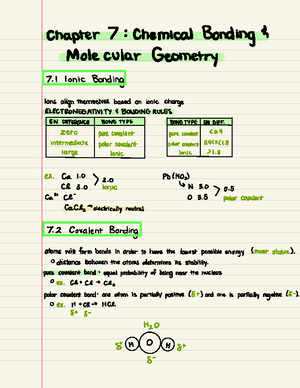 Chapter 7: Chemical Bonding &
Molecular Geometry
7.1 Ionic Bonding
Ions align themselves based on ionic charge
ELECTRONEGATIVITY & BONDING RULES
EN DIFFERENCE BOND TYPE
zero pure covalent
intermediate polar covalent
large ionic
BOND TYPE EN DIFF.
pure covalent <0.4
polar covalent 0.4<x<1.8
ionic >1.8
ex. Ca 1.0
Cl 3.0
> 2.0
ionic
Ca²⁺ Cl⁻
CaCl₂ → electrically neutral
Pb(NO₃)
N 3.0
O 3.5
> 0.5
polar covalent
7.2 Covalent Bonding
atoms will form bonds in order to have the lowest possible energy (most stable).
○ distance between the atoms determines its stability.
pure covalent bond: equal probability of being near the nucleus
○ ex. Cl + Cl → Cl₂
polar covalent bond: one atom is partially positive (δ+) and one is partially negative (δ-).
○ ex. H + Cl → HCl
δ+ δ-
H₂O
δ+ H O H δ+
δ-